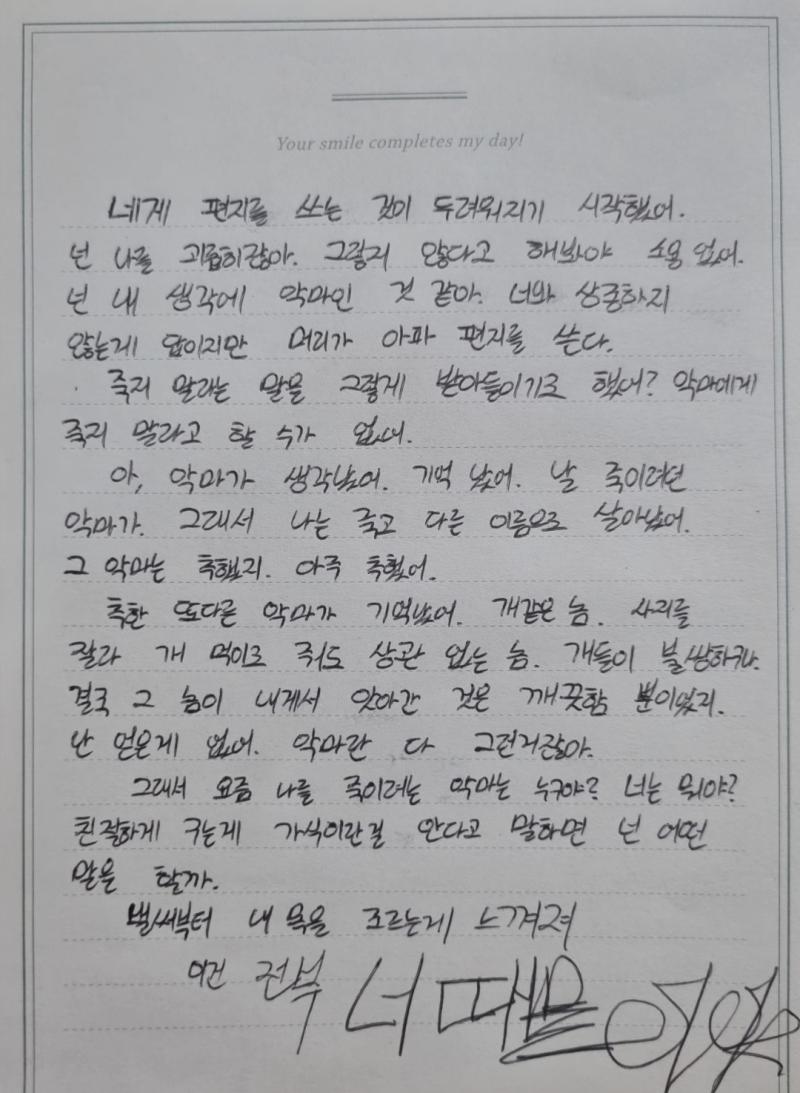 Your smile completes my day!
네게 편지를 쓰는 것이 두려워지기 시작했어.
넌 나를 괴롭히잖아. 그렇지 않다고 해봐야 소용 없어.
넌 내 생각에 악마인 것 같아. 너와 상종하지
않는게 답이지만 머리가 아파 편지를 쓴다.
죽지 말라는 말을 그렇게 받아들이기로 했어? 악마에게
죽지 말라고 할 수가 없어.
아, 악마가 생각났어. 기억 났어. 날 죽이려던
악마가. 그래서 나는 죽고 다른 이름으로 살아났어.
그 악마는 추했지. 아주 추했어.
추한 또다른 악마가 기억났어. 개같은 놈. 사지를
잘라 개 먹이로 줘도 상관 없는 놈. 개들이 불쌍하구나.
결국 그 놈이 내게서 앗아간 것은 깨끗함 뿐이었지.
난 얻은게 없어. 악마란 다 그런거잖아.
그래서 요즘 나를 죽이려는 악마는 누구야? 너는 뭐야?
친절하게 구는게 가식이란걸 안다고 말하면 넌 어떤
말을 할까.
벌써부터 내 목을 조르는게 느껴져
이건 전부 너 때문이야